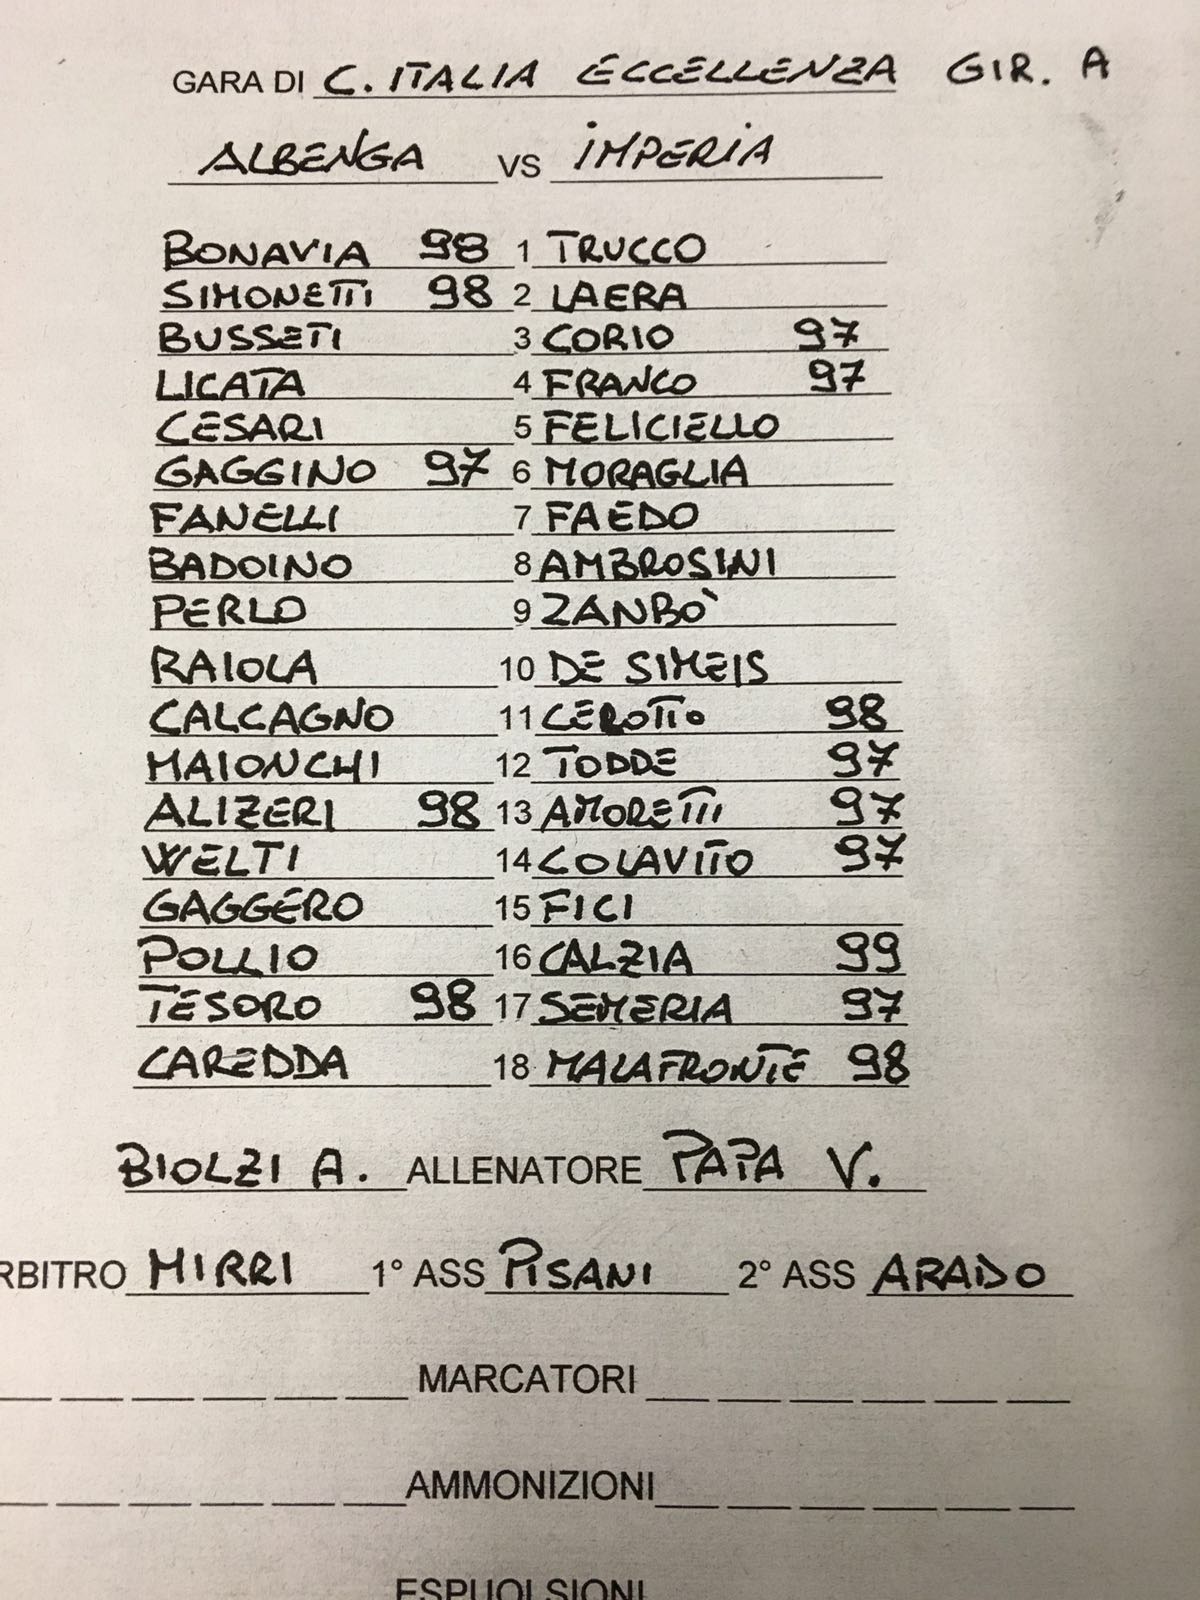 GARA DI C. ITALIA ECCELLENZA GIR. A
ALBENGA VS IMPERIA
BONAVIA 98 1 TRUCCO
SIMONETTI 98 2 LAERA
BUSSETI 3 CORIO 97
LICATA 4 FRANCO 97
CESARI 5 FELICIELLO
GAGGINO 97 6 MORAGLIA
FANELLI 7 FAEDO
BADOINO 8 AMBROSINI
PERLO 9 ZANBO'
RAIOLA 10 DE SIMEIS
CALCAGNO 11 CEROTTO 98
MAIONCHI 12 TODDE 97
ALIZERI 98 13 AMORETTI 97
WELTI 14 COLAVITO 97
GAGGERO 15 FICI
POLLIO 16 CALZIA 99
TESORO 98 17 SEMERIA 97
CAREDDA 18 MALAFRONTE 98
BIOLZI A. ALLENATORE PAPA V.
RBITRO MIRRI 1° ASS PISANI 2° ASS ARADO
MARCATORI
AMMONIZIONI
ESPUOLSIONI